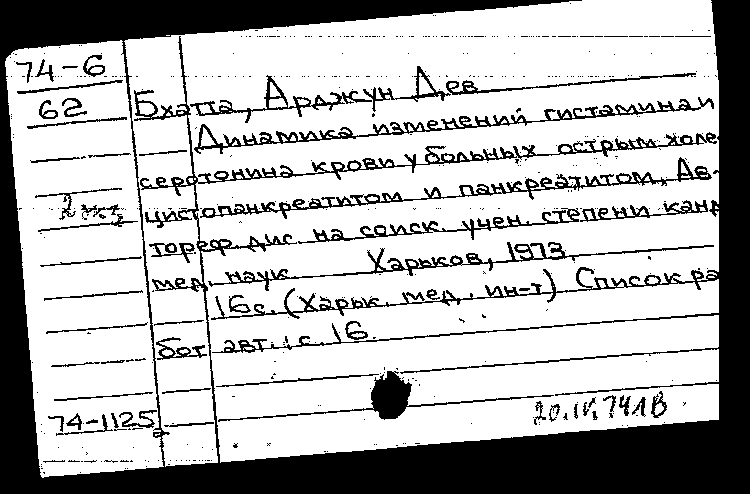 74-6
62
Бхатта, Арджун Дев
Динамика изменений гистамина и
серотонина крови у больных острым холе-
цистопанкреатитом и панкреатитом, Ав-
тореф. дис. на соиск. учен. степени канд
мед. наук. Харьков, 1973.
16с. (Харьк. мед. ин-т) Список ра
бот авт.: с. 16.
2 экз
74-1125
20.IV.74